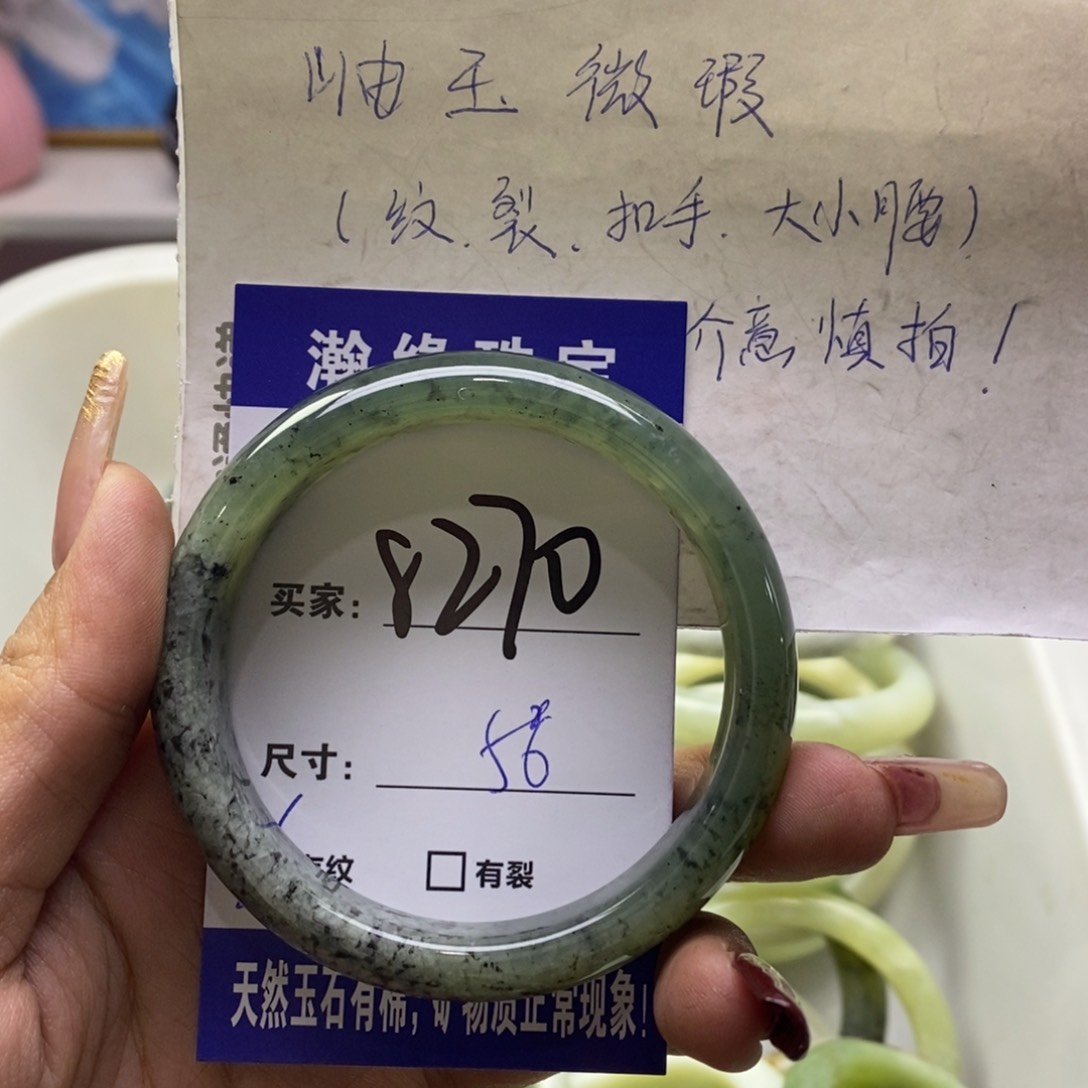 岫玉微瑕
(纹.裂.扣手.大小腰)
介意慎拍!
瀚缘珠宝
买家: 8270
尺寸: 56
纹 □有裂
天然玉石有棉,矿物质正常现象!